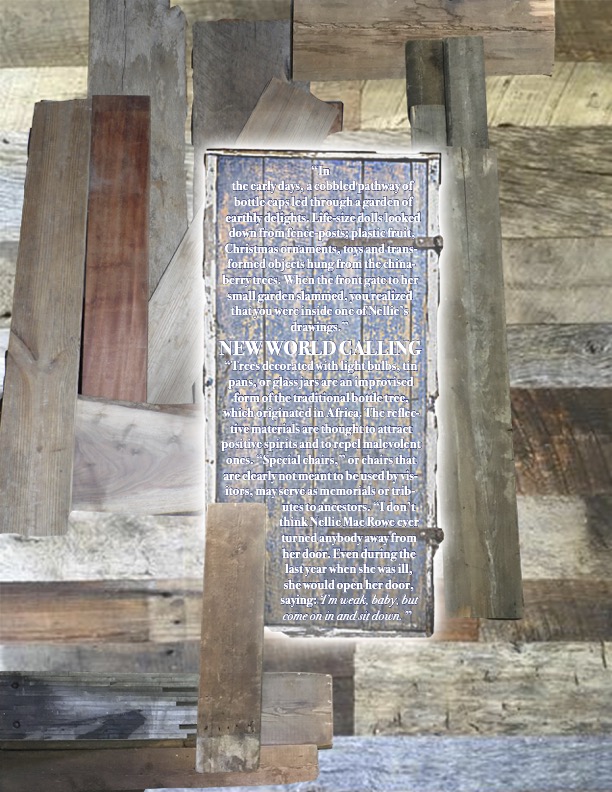 “In
the early days, a cobbled pathway of
bottle caps led through a garden of
earthly delights. Life-size dolls looked
down from fence-posts; plastic fruit,
Christmas ornaments, toys and trans-
formed objects hung from the china-
berry trees. When the front gate to her
small garden slammed, you realized
that you were inside one of Nellie’s
drawings.”
NEW WORLD CALLING
“Trees decorated with light bulbs, tin
pans, or glass jars are an improvised
form of the traditional bottle tree,
which originated in Africa. The reflec-
tive materials are thought to attract
positive spirits and to repel malevolent
ones. “Special chairs,” or chairs that
are clearly not meant to be used by vis-
itors, may serve as memorials or trib-
utes to ancestors. “I don’t
think Nellie Mae Rowe ever
turned anybody away from
her door. Even during the
last year when she was ill,
she would open her door,
saying: ‘I’m weak, baby, but
come on in and sit down.’”